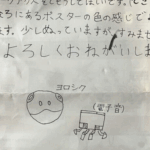 にあるポスターの色の感じで
ます。少しぬっていますが、すみませ
よろしくおねがいしま
ヨロシク
(電子音)